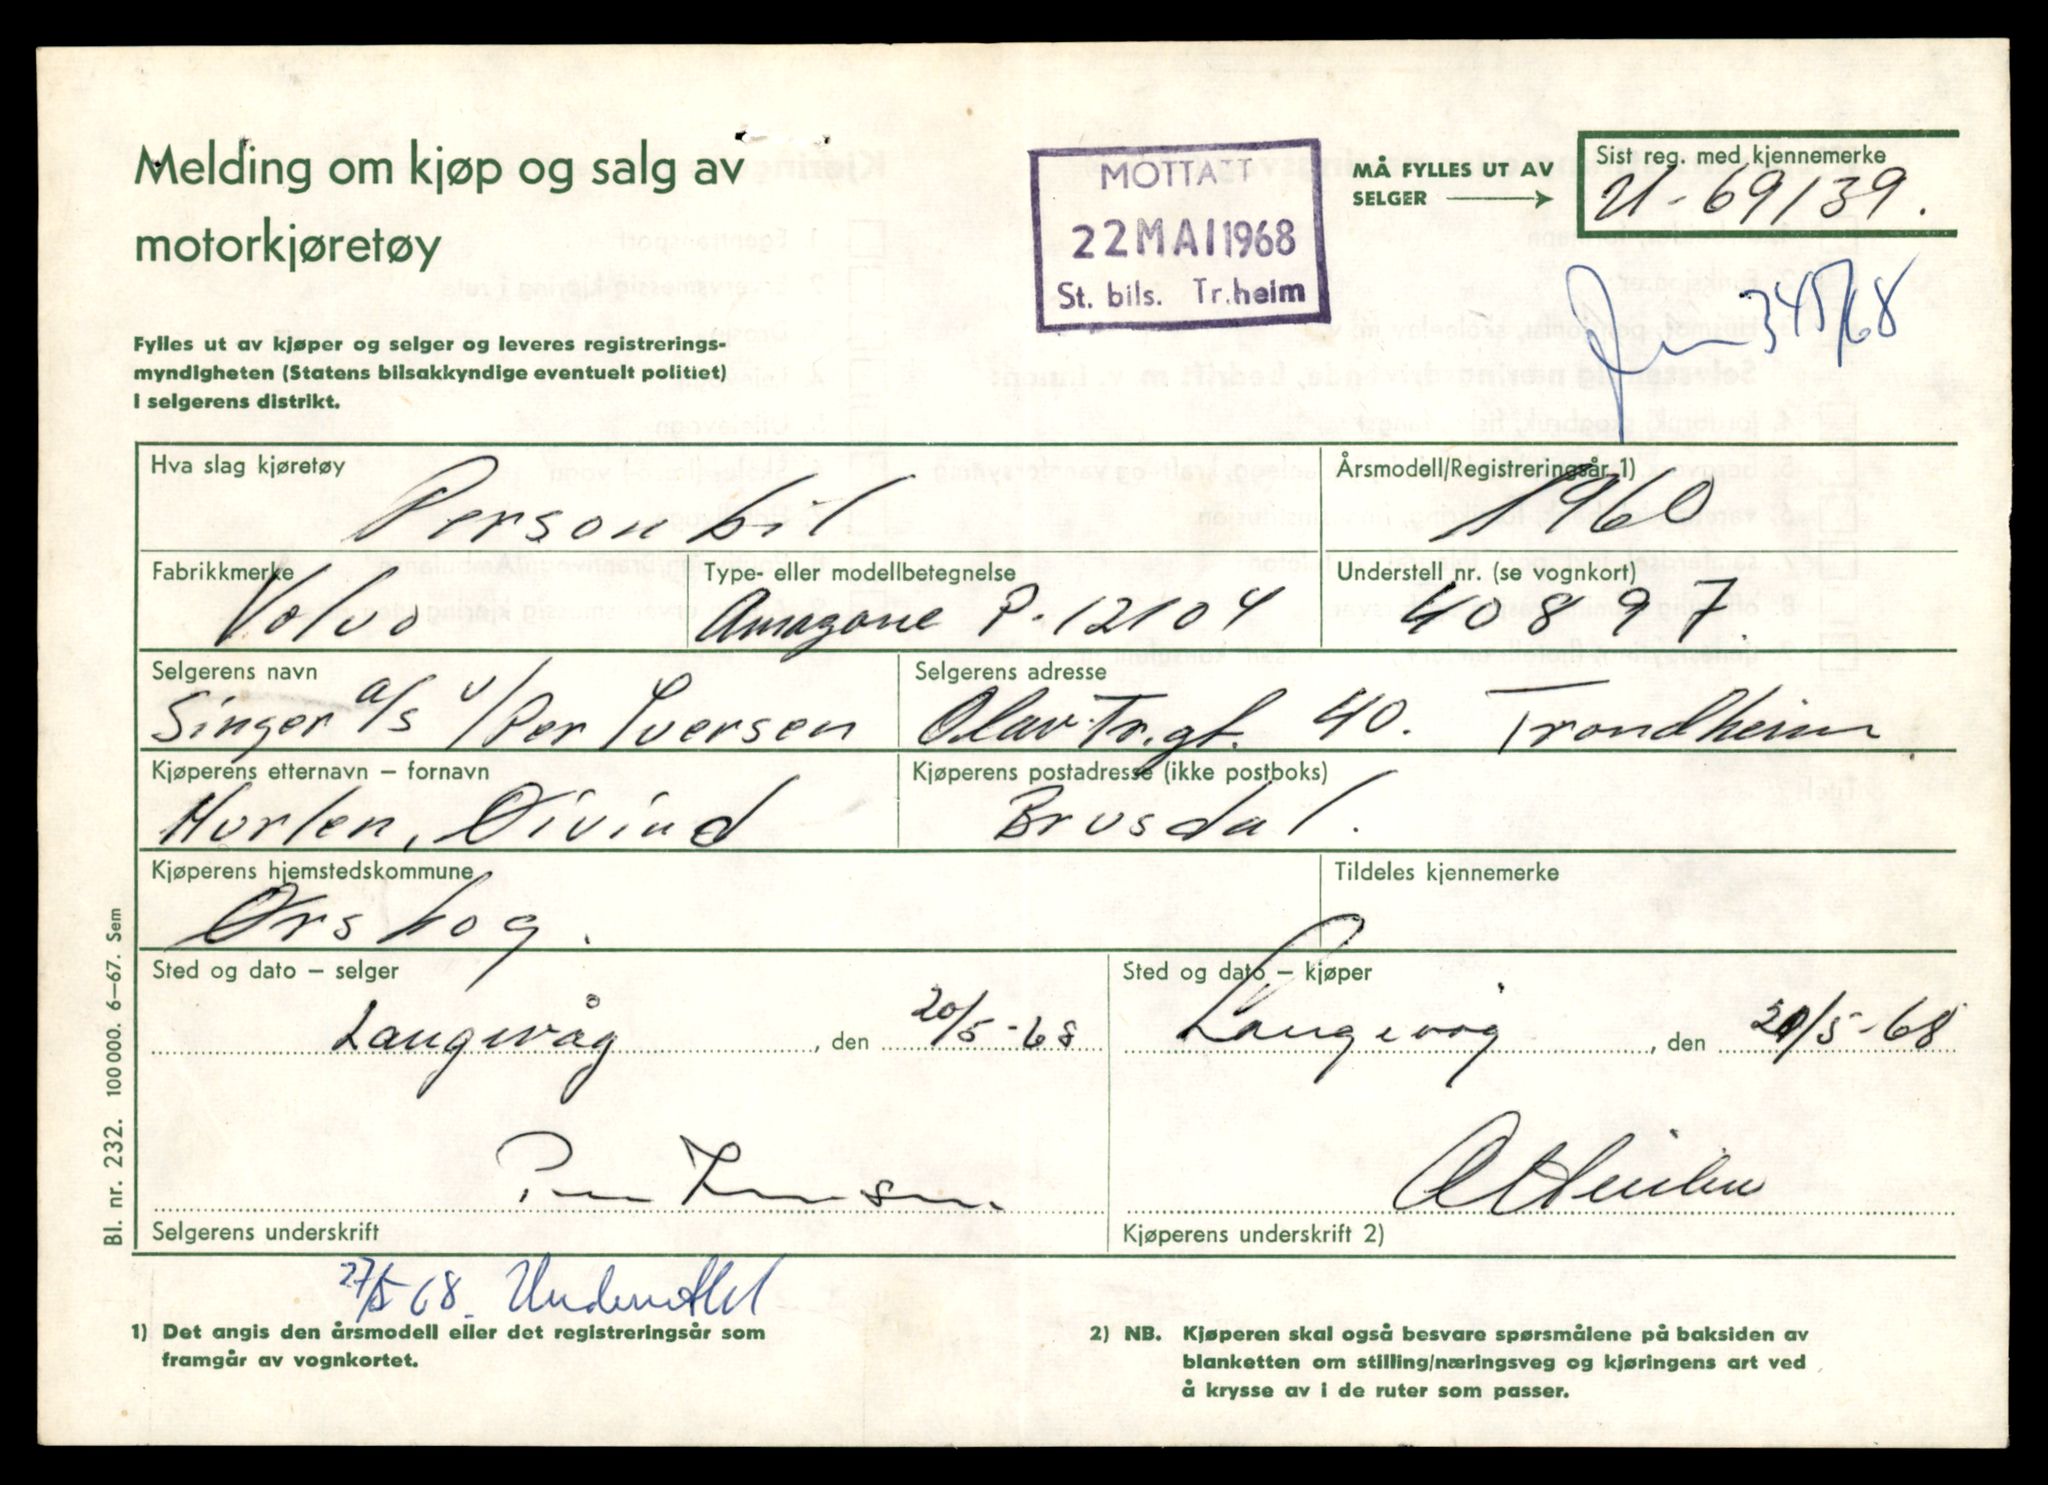 Melding om kjøp og salg av
motorkjøretøy
MOTTATT
22 MAI 1968
St. bils. Tr.heim
MÅ FYLLES UT AV
SELGER
Sist reg. med kjennemerke
U-69139.
345/68
Fylles ut av kjøper og selger og leveres registrerings-
myndigheten (Statens bilsakkyndige eventuelt politiet)
i selgerens distrikt.
Hva slag kjøretøy
Personbil
Årsmodell/Registreringsår 1)
1960
Fabrikkmerke
Volvo
Type- eller modellbetegnelse
Amazone P-12104
Understell nr. (se vognkort)
40897.
Selgerens navn
Singer a/s v/Per Iversen
Selgerens adresse
Olav Tr.gt. 40. Trondheim
Kjøperens etternavn – fornavn
Hurlen, Øivind
Kjøperens postadresse (ikke postboks)
Brusdal.
Kjøperens hjemstedskommune
Ørskog.
Tildeles kjennemerke
Sted og dato – selger
Langevåg, den 20/5-68
Sted og dato – kjøper
Langevåg, den 20/5-68
Per Iversen
Selgerens underskrift
Kjøperens underskrift 2)
27/5 68.
1) Det angis den årsmodell eller det registreringsår som
framgår av vognkortet.
2) NB. Kjøperen skal også besvare spørsmålene på baksiden av
blanketten om stilling/næringsveg og kjøringens art ved
å krysse av i de ruter som passer.
Bl. nr. 232. 100 000. 6–67. Sem